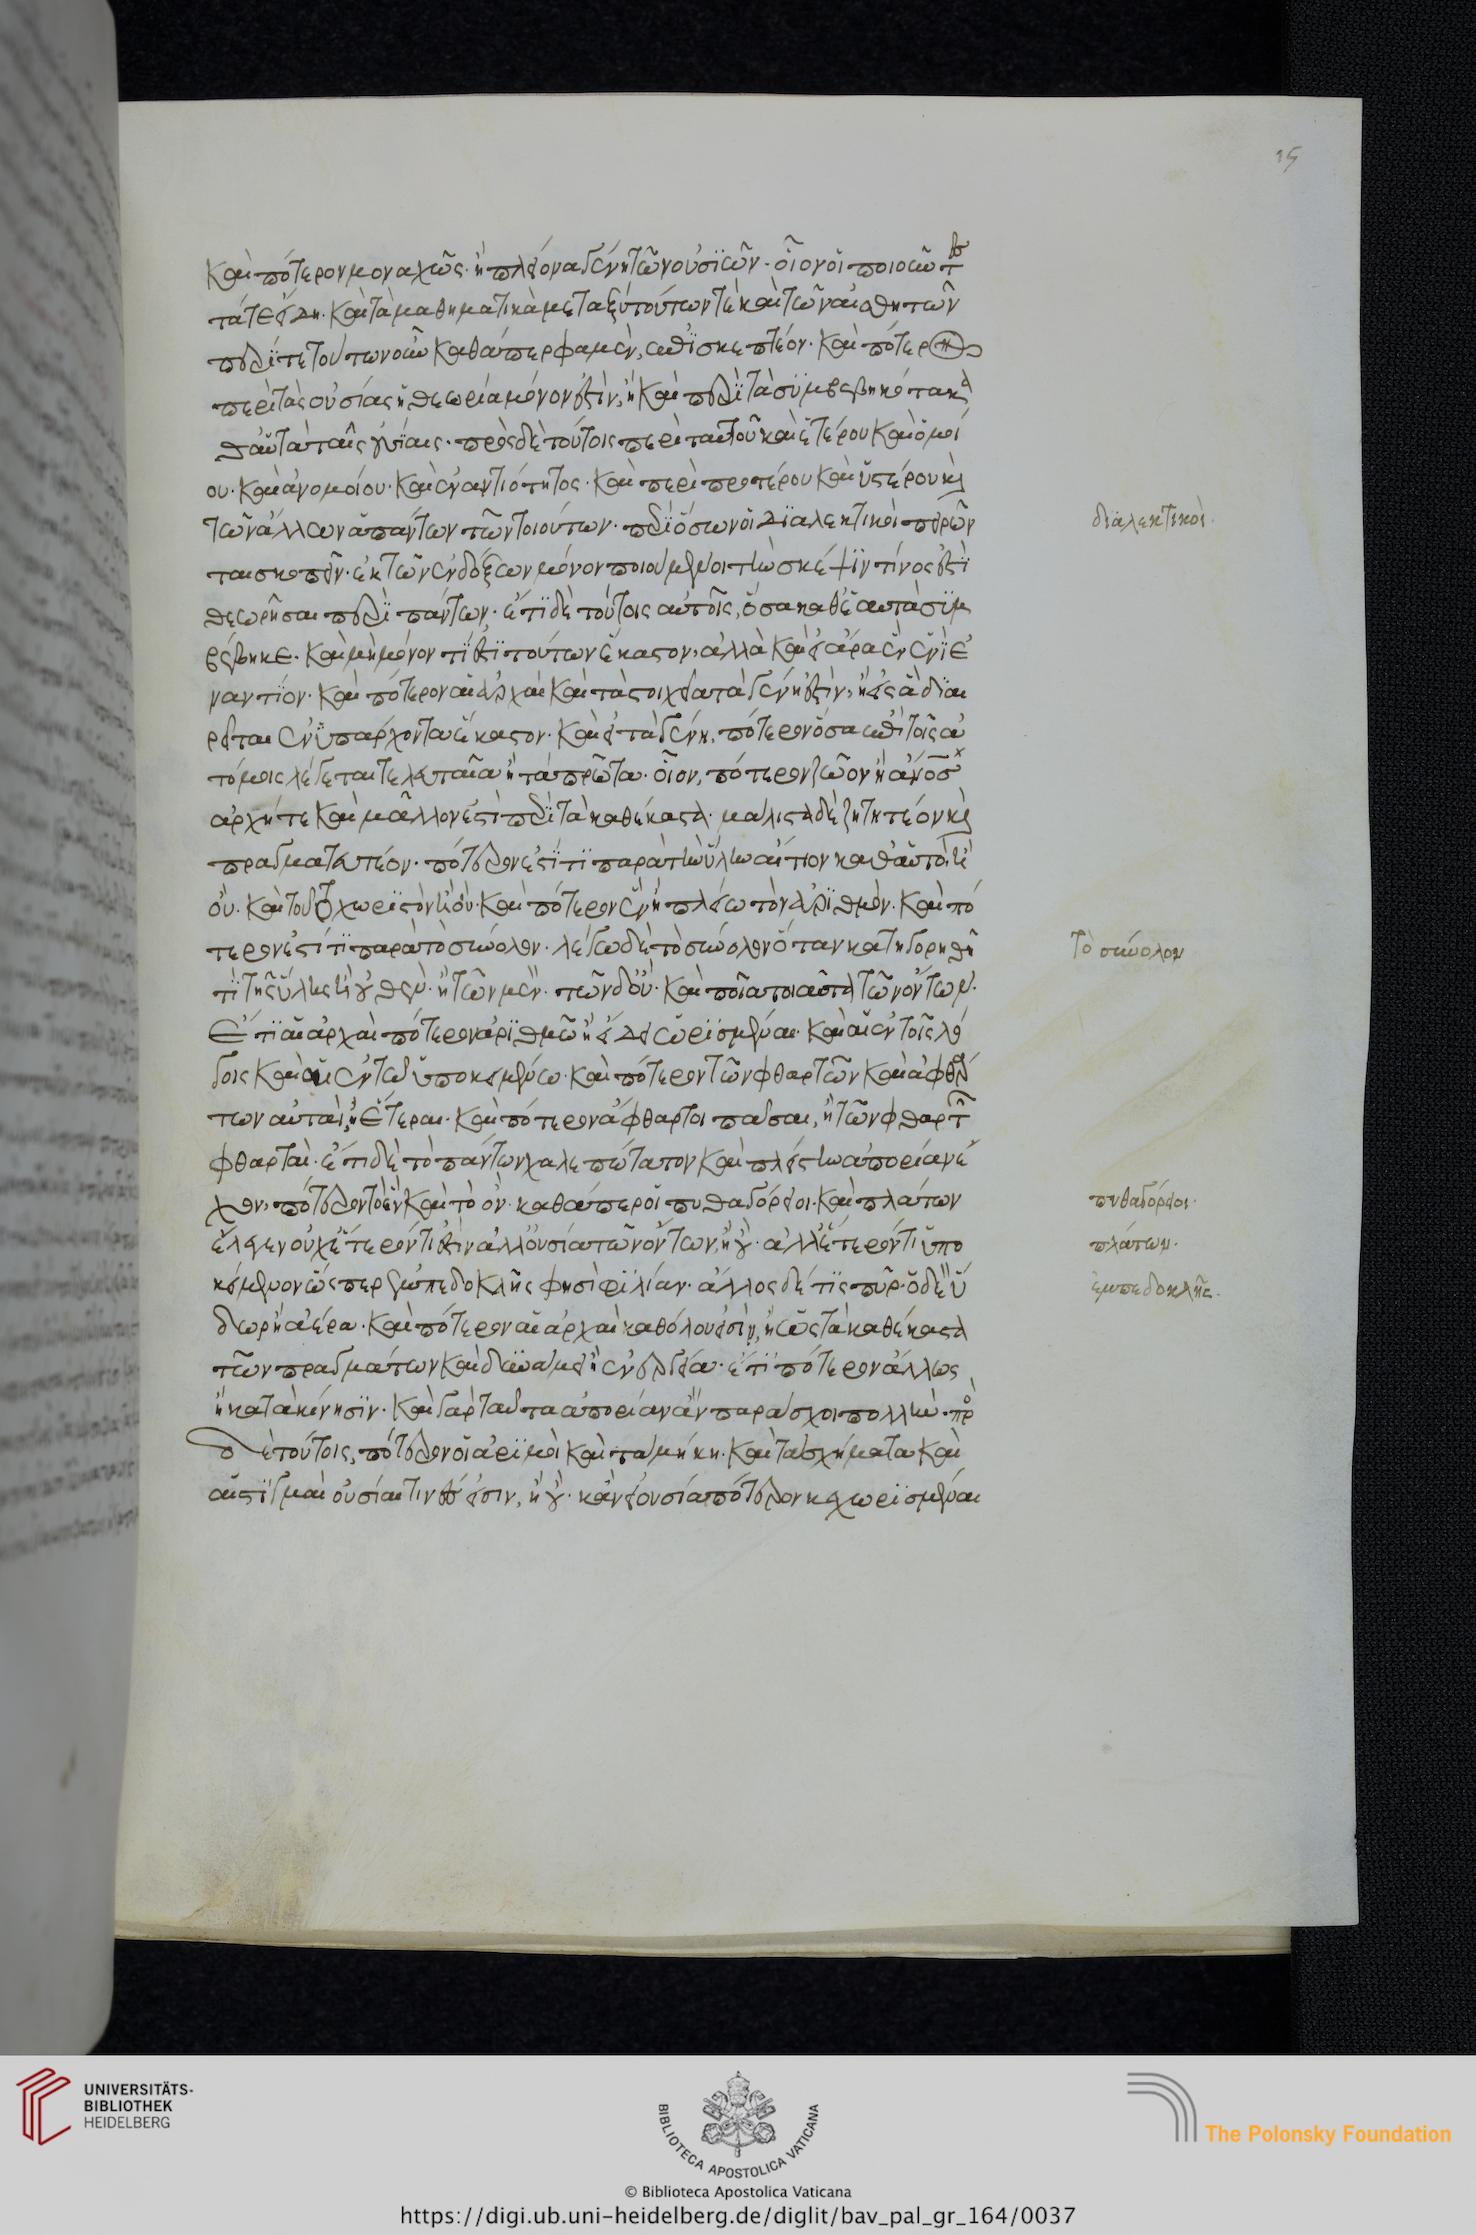 Καὶ πότερον μοναχῶς· ἢ πλείονα γένη τῶν οὐσιῶν· οἷον οἱ ποιοῦντες
τά τε εἴδη· καὶ τὰ μαθηματικὰ μεταξὺ τούτων τὲ καὶ τῶν αἰσθητῶν
περί τε τούτων οὖν καθάπερ φαμὲν, ἐπισκεπτέον· καὶ πότερον
περὶ τὰς οὐσίας ἡ θεωρία μόνον ἐστὶν, ἢ καὶ περὶ τὰ συμβεβηκότα κα
θαὑτὰ ταῖς οὐσίαις· πρὸς δὲ τούτοις περὶ ταυτοῦ καὶ ἑτέρου καὶ ὁμοί
ου· καὶ ἀνομοίου· καὶ ἐναντιότητος· καὶ περὶ προτέρου καὶ ὑστέρου καὶ
τῶν ἄλλων ἁπάντων τῶν τοιούτων· περὶ ὅσων οἱ διαλεκτικοὶ πειρῶν
ται σκοπεῖν· ἐκ τῶν ἐνδόξων μόνον ποιούμενοι τὴν σκέψιν τίνος ἐστὶ
θεωρῆσαι περὶ πάντων· ἔτι δὲ τούτοις αὐτοῖς, ὅσα καθ' αὑτὰ συμ
βέβηκε· καὶ μὴ μόνον τί ἐστι τούτων ἕκαστον, ἀλλὰ καὶ εἰ ἄρα ἓν ἑνὶ ἐ
ναντίον· καὶ πότερον αἱ ἀρχαὶ καὶ τὰ στοιχεῖα τὰ γένη ἐστὶν, ἢ εἰς ἃ διαι
ρεῖται ἐνυπάρχοντα ἕκαστον· καὶ εἰ τὰ γένη, πότερον ὅσα ἐπὶ τοῖς ἀ
τόμοις λέγεται τελευταῖα ἢ τὰ πρῶτα· οἷον, πότερον ζῶον ἢ ἄνος
ἀρχή τε καὶ μᾶλλον ἐστὶ περὶ τὰ καθέκαστα· μάλιστα δὲ ζητητέον καὶ
πραγματευτέον· πότερον ἐστί τι παρὰ τὴν ὕλην αἴτιον καθ' αὑτὸ ἢ
οὐ· καὶ τοῦτο χωριστὸν ἢ οὐ· καὶ πότερον ἓν ἢ πλείω τὸν ἀριθμόν· καὶ πό
τερον ἐστί τι παρὰ τὸ σύνολον· λέγω δὲ τὸ σύνολον ὅταν κατηγορηθῆ
τὶ τῆς ὕλης ἢ οὐθέν· ἢ τῶν μὲν· τῶν δ' οὔ· καὶ ποῖα τοιαῦτα τῶν ὄντων·
Ἔτι αἱ ἀρχαὶ πότερον ἀριθμῶ ἢ εἴδει ὡρισμέναι· καὶ αἱ ἐν τοῖς λό
γοις καὶ αἱ ἐν τῶ ὑποκειμένω· καὶ πότερον τῶν φθαρτῶν καὶ ἀφθάρ
των αὐταὶ, ἢ ἕτεραι· καὶ πότερον ἄφθαρτοι πᾶσαι, ἢ τῶν φθαρτῶν
φθαρταί· ἔτι δὲ τὸ πάντων χαλεπώτατον καὶ πλείστην ἀπορίαν ἔ
χον, πότερον τὸ ἓν καὶ τὸ ὄν· καθάπερ οἱ πυθαγόρειοι· καὶ πλάτων
ἔλεγεν οὐχ' ἕτερόν τι ἐστὶν ἀλλ' οὐσία τῶν ὄντων, ἢ οὔ· ἀλλ' ἕτερόν τι ὑπο
κείμενον ὥσπερ ἐμπεδοκλῆς φησὶ φιλίαν· ἄλλος δέ τις πῦρ· ὁ δὲ ὕ
δωρ ἢ ἀέρα· καὶ πότερον αἱ ἀρχαὶ καθόλου εἰσὶν, ἢ ὡς τὰ καθέκαστα
τῶν πραγμάτων καὶ δυνάμει ἢ ἐνεργεία· ἔτι πότερον ἄλλως
ἢ κατὰ κίνησιν· καὶ γὰρ ταῦτα ἀπορίαν ἂν παράσχοι πολλήν· πρὸς
δὲ τούτοις, πότερον οἱ ἀριθμοὶ καὶ τὰ μήκη· καὶ τὰ σχήματα καὶ
αἱ στιγμαὶ οὐσίαι τινες εἰσιν, ἢ οὔ· κἂν εἰ οὐσίαι πότερον κεχωρισμέναι
διαλεκτικοὶ·
τὸ σύνολον
πυθαγόρειοι·
πλάτων·
ἐμπεδοκλῆς·
UNIVERSITÄTS-
BIBLIOTHEK
HEIDELBERG
BIBLIOTECA APOSTOLICA VATICANA
© Biblioteca Apostolica Vaticana
The Polonsky Foundation
https://digi.ub.uni-heidelberg.de/diglit/bav_pal_gr_164/0037